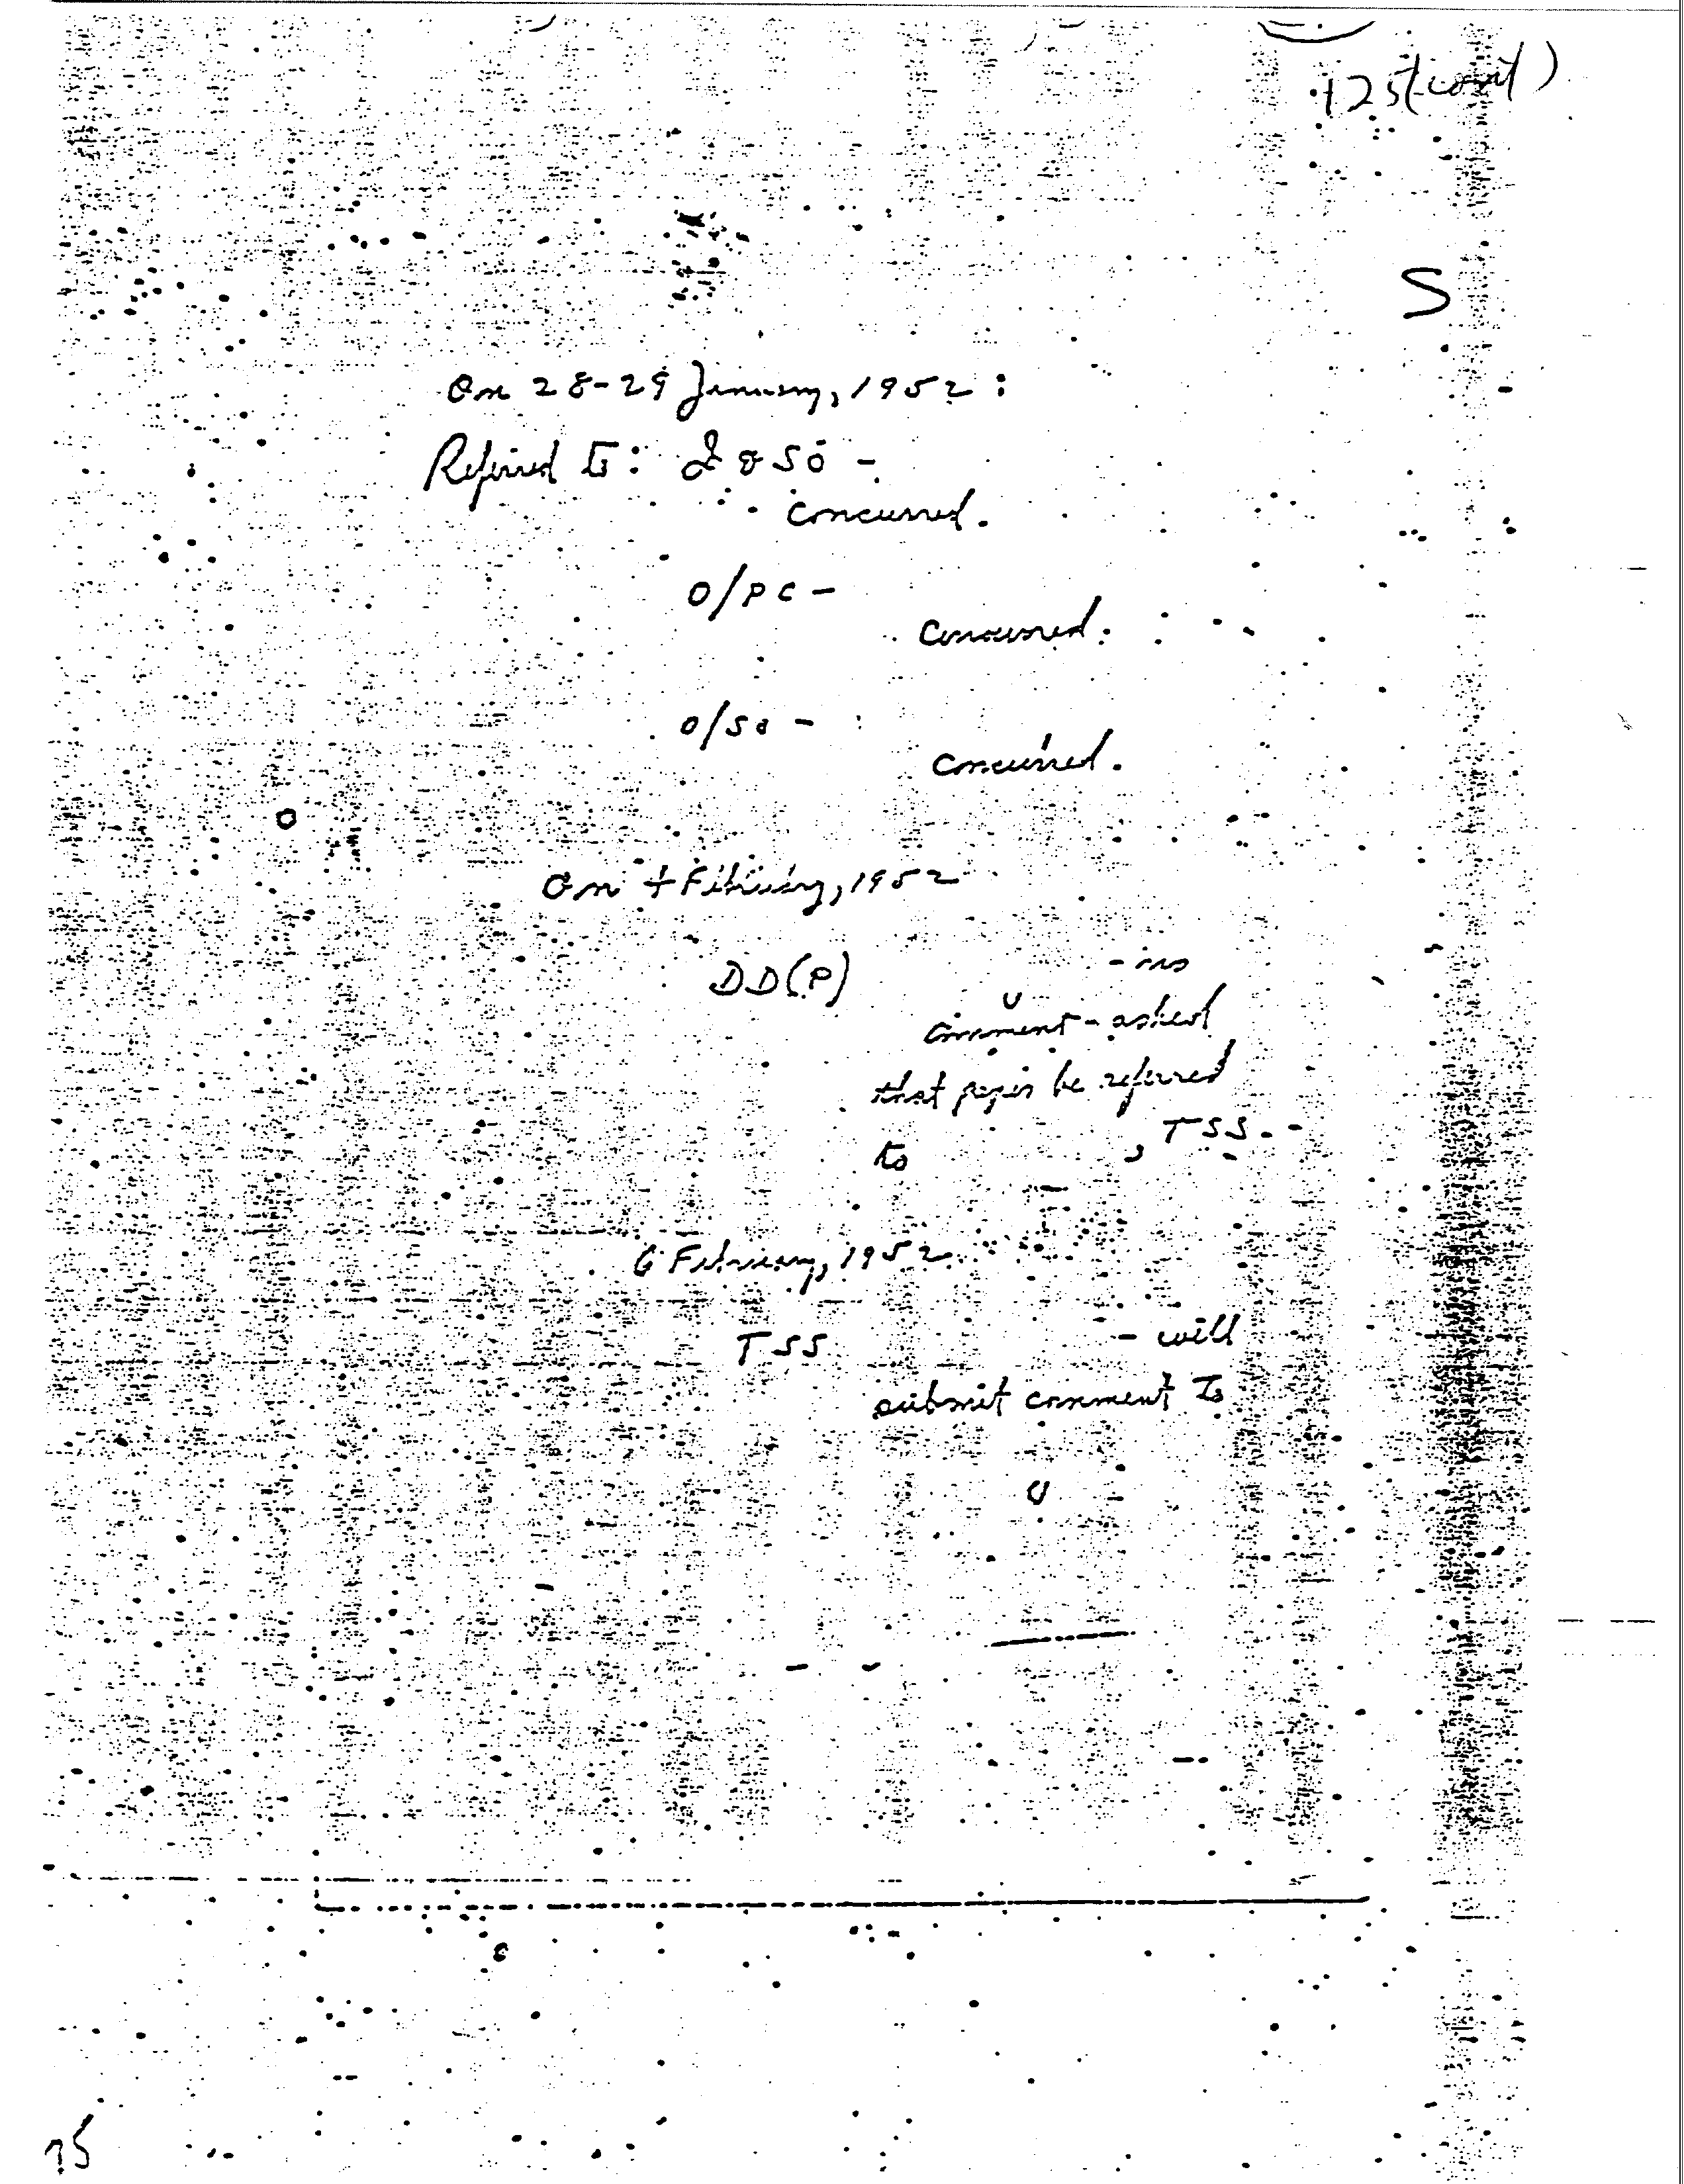 125(cont)
S
On 28-29 January, 1952:
Referred to: I & SO -
concurred.
O/PC -
concurred.
O/SO -
concurred.
On 4 February, 1952
DD(P) - no
comment - asked
that paper be referred
to , TSS. -
6 February, 1952
TSS - will
submit comment to